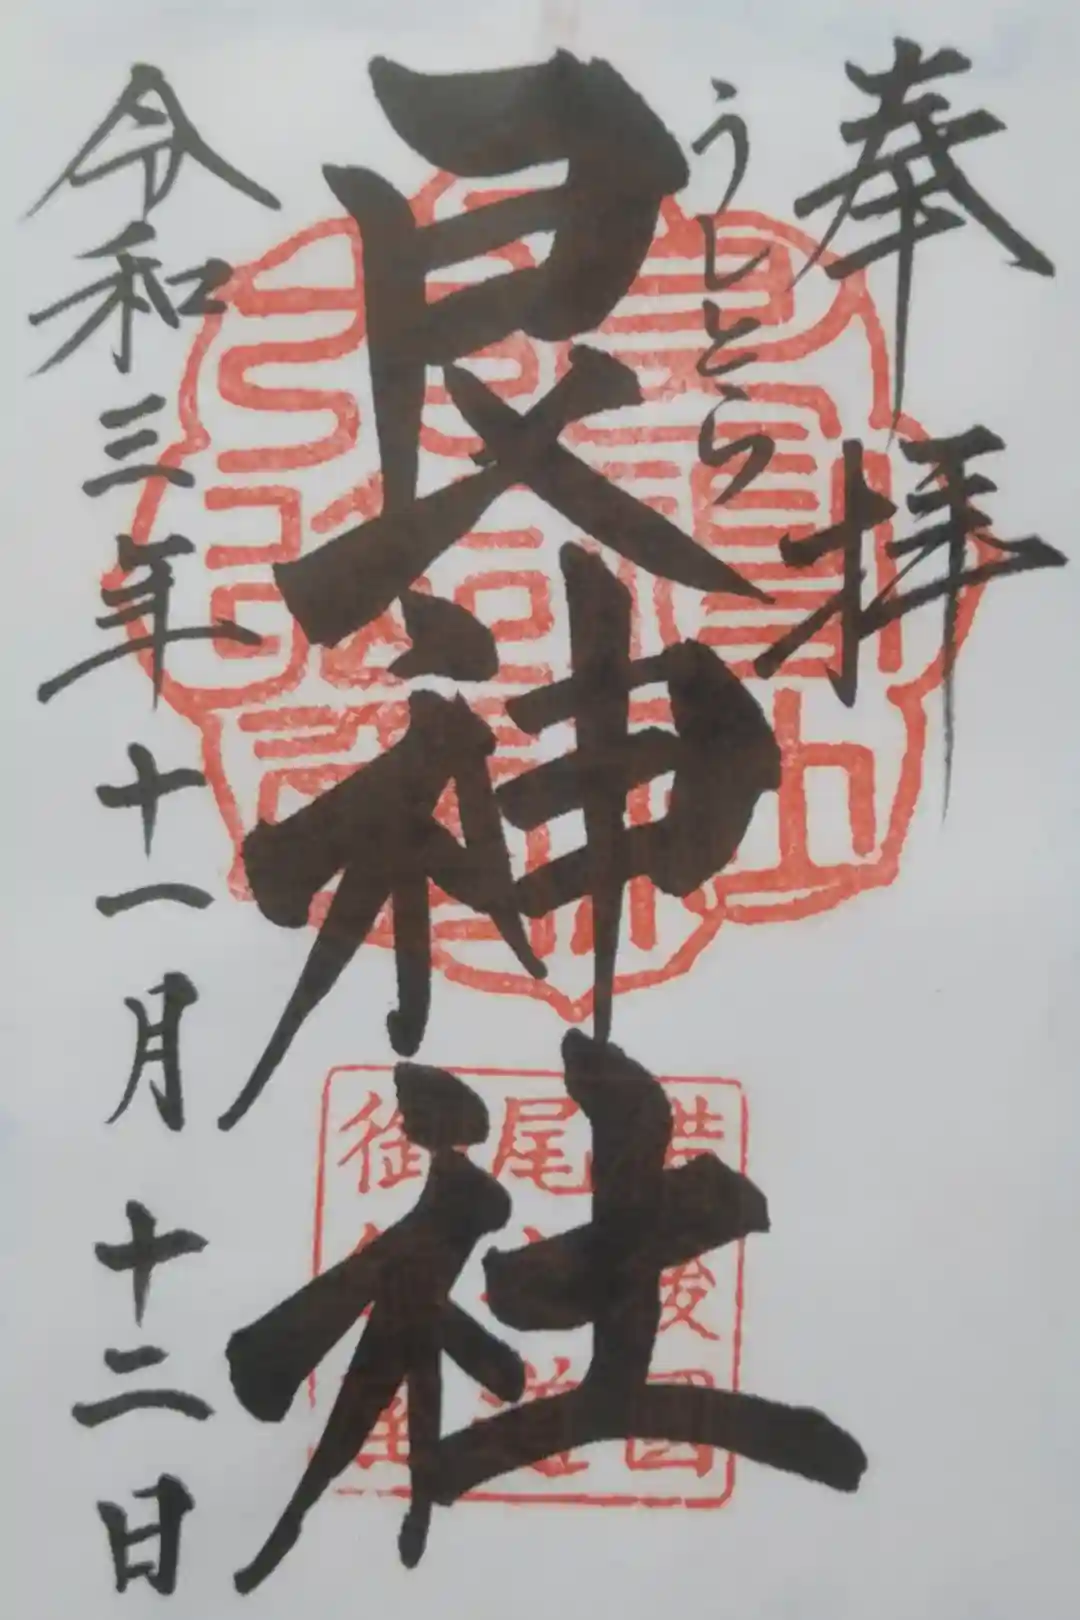 奉拝
うしとら
艮神社
令和三年十一月十二日
備後國
尾道
御